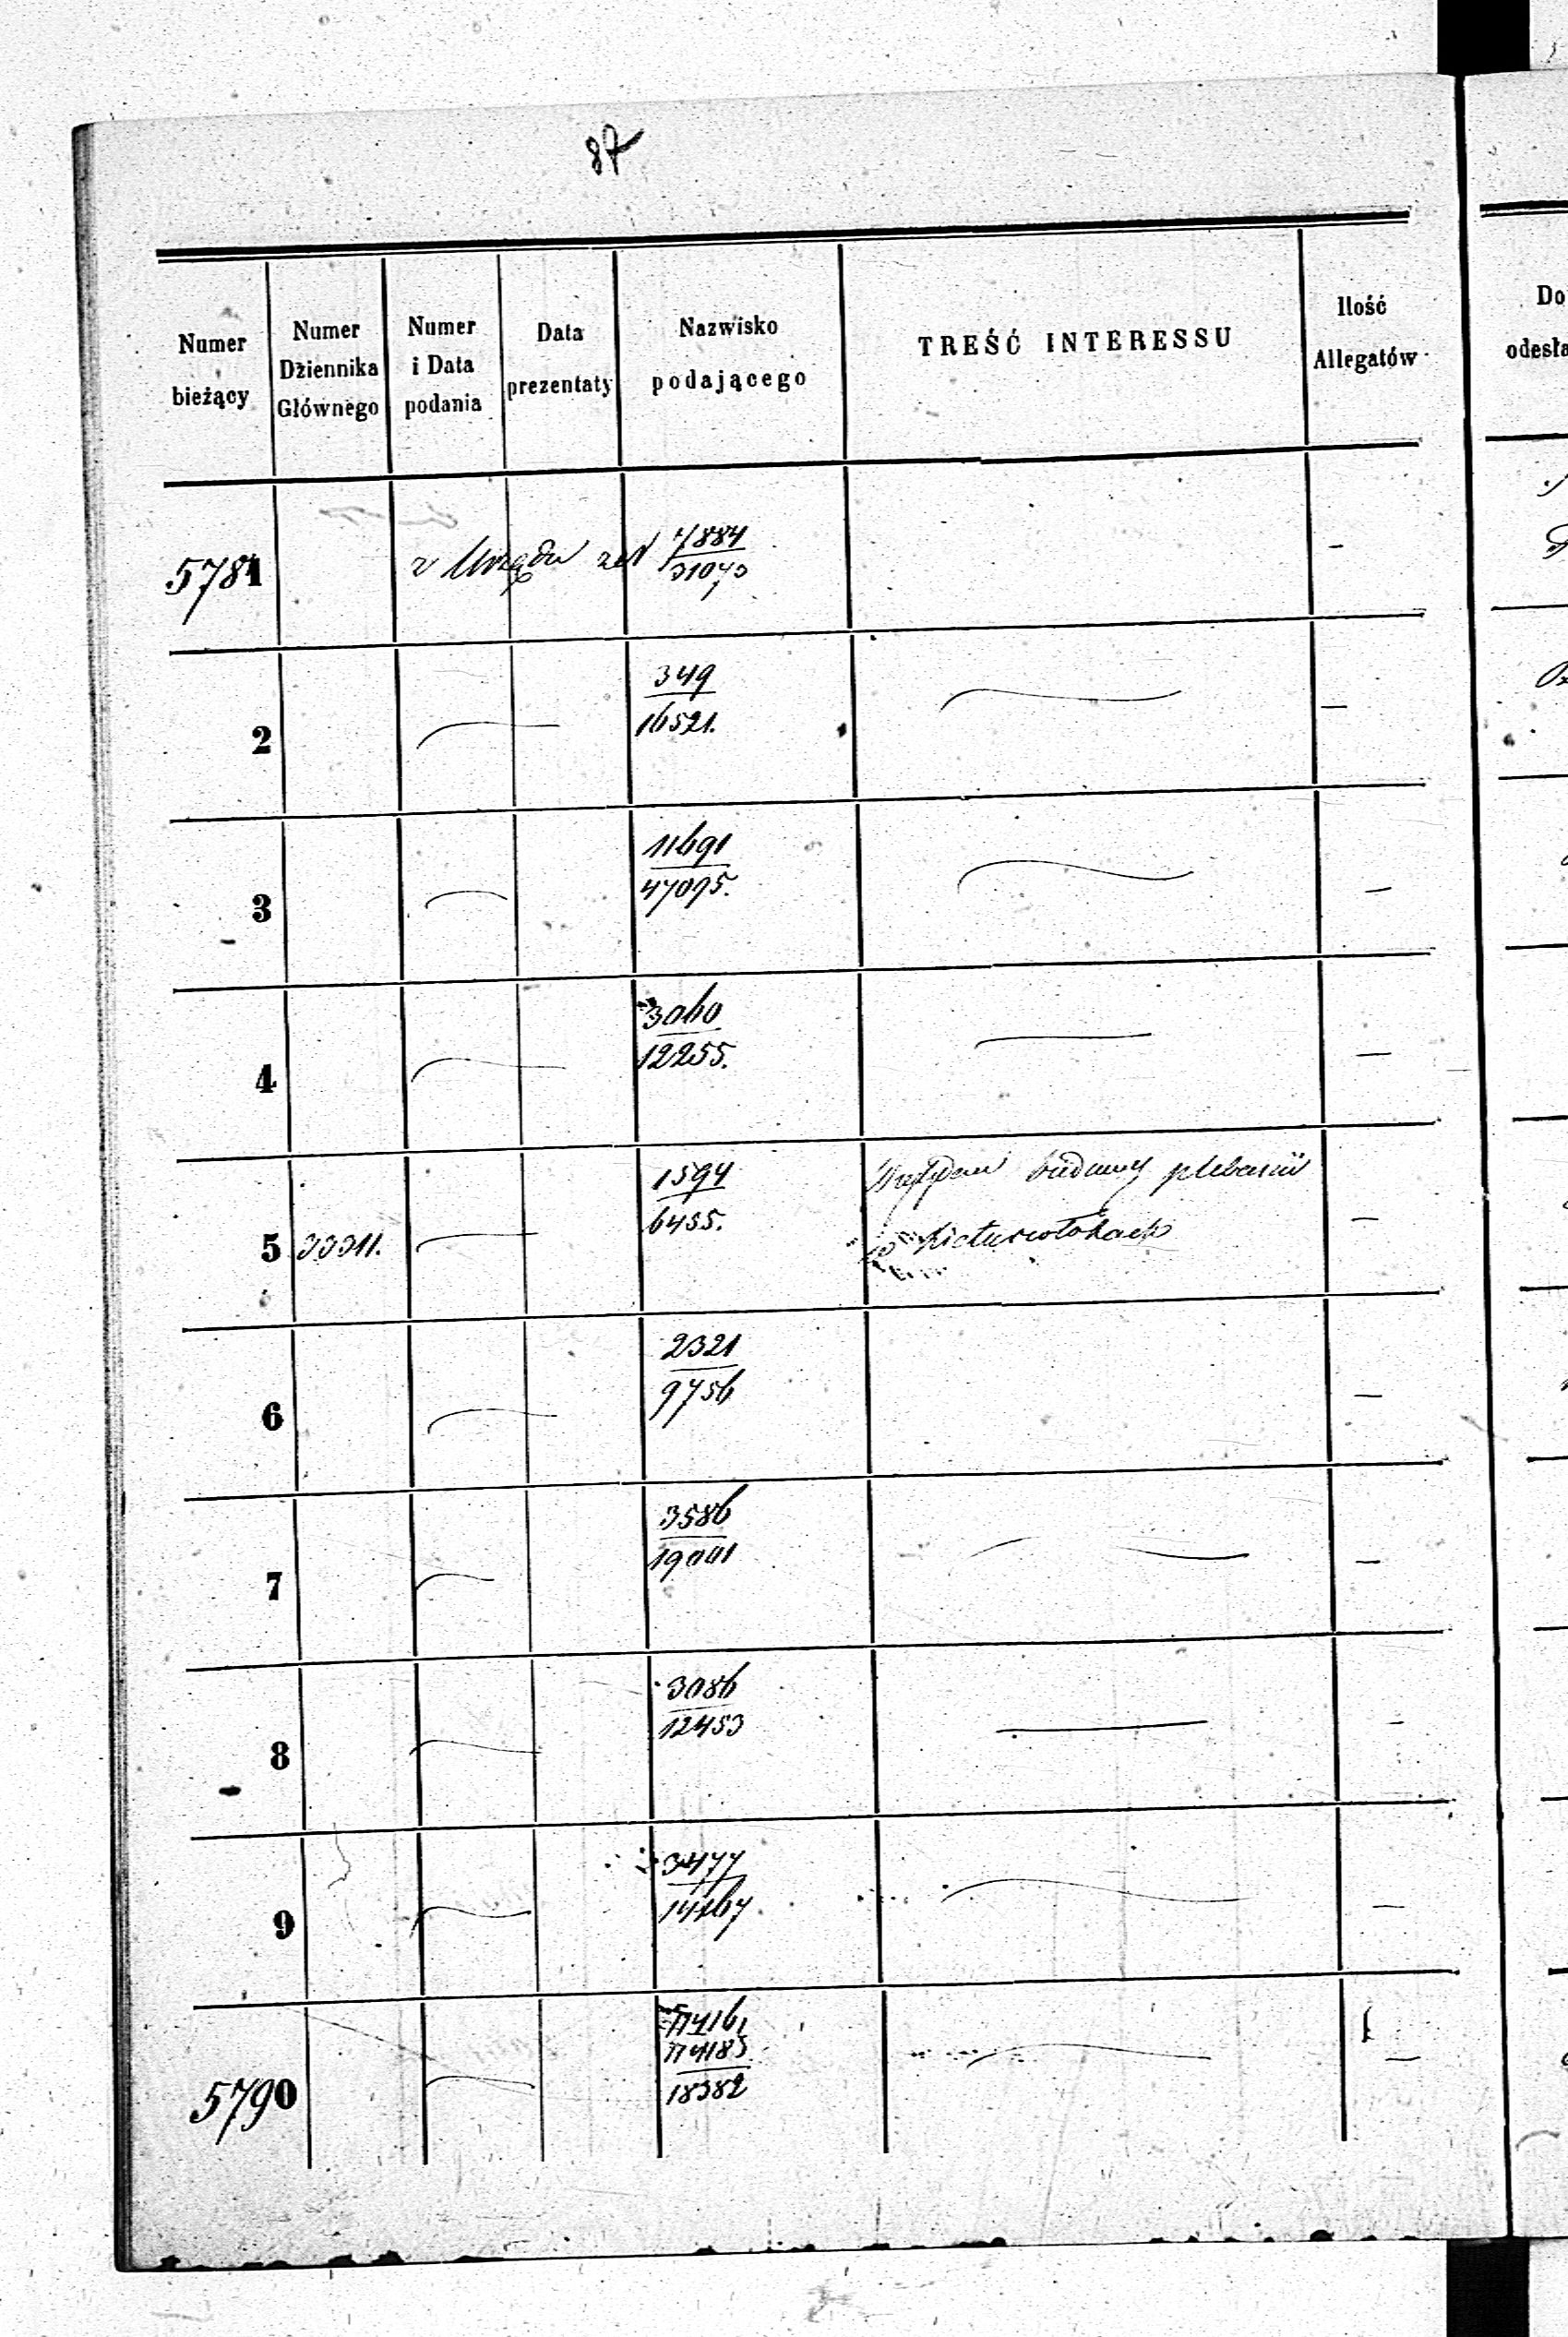 87
Numer bieżący
Numer Dziennika Głównego
Numer i Data podania
Data prezentaty
Nazwisko podającego
TREŚĆ INTERESSU
Ilość Allegatów
Do
odesła
5781 z Urzędu 4884 —
31073
2 349 —
16521.
3 11691 —
47095.
4 3060 —
12255.
5 33311. 1594 budowy plebanii —
6455.
6 2321 —
9756
7 3586 —
19001
8 3086 —
12453
9 3477 —
14167
5790 —
18382